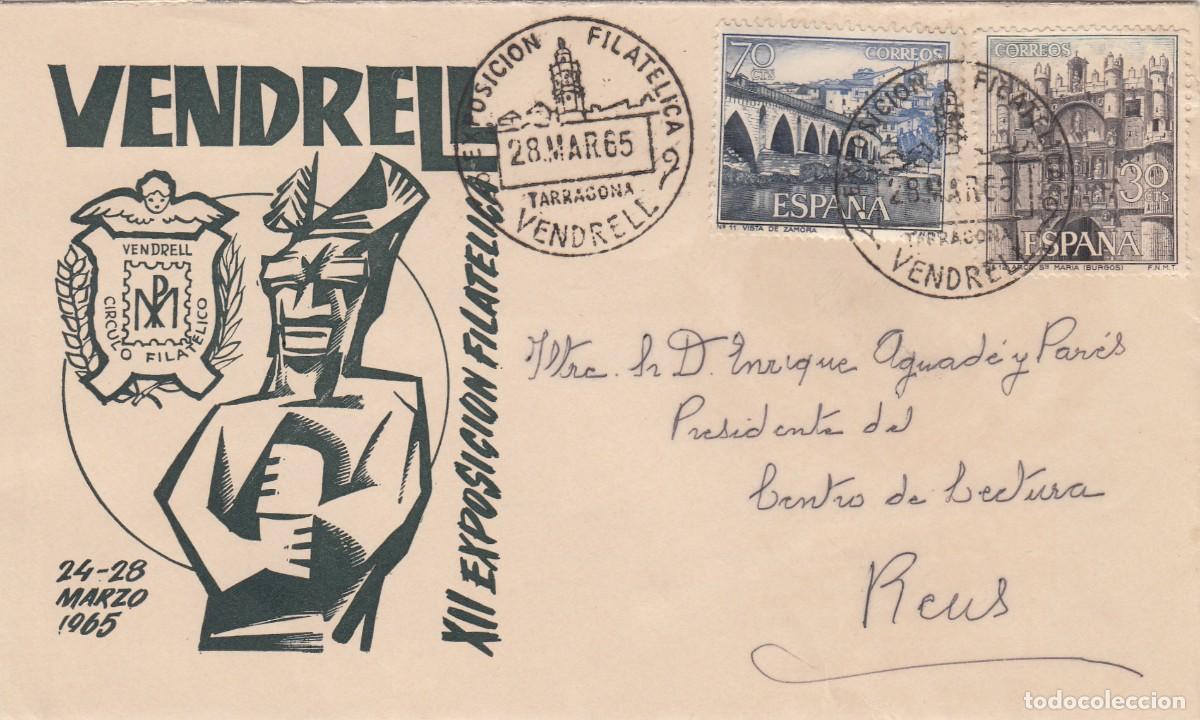 VENDRELL
VENDRELL
CIRCULO FILATELICO
24-28
MARZO
1965
XII EXPOSICION FILATELICA
EXPOSICION FILATELICA
28.MAR65
TARRAGONA
VENDRELL
70 CTS
CORREOS
ESPAÑA
Nº 11 VISTA DE ZAMORA
CORREOS
30 CTS
ESPAÑA
Nº 12 ARCO Sª MARIA (BURGOS)
F.N.M.T
EXPOSICION FILATELICA
28.MAR65
TARRAGONA
VENDRELL
Iltre. Sr D. Enrique Aguadé y Parés
Presidente del
Centro de Lectura
Reus
todocoleccion